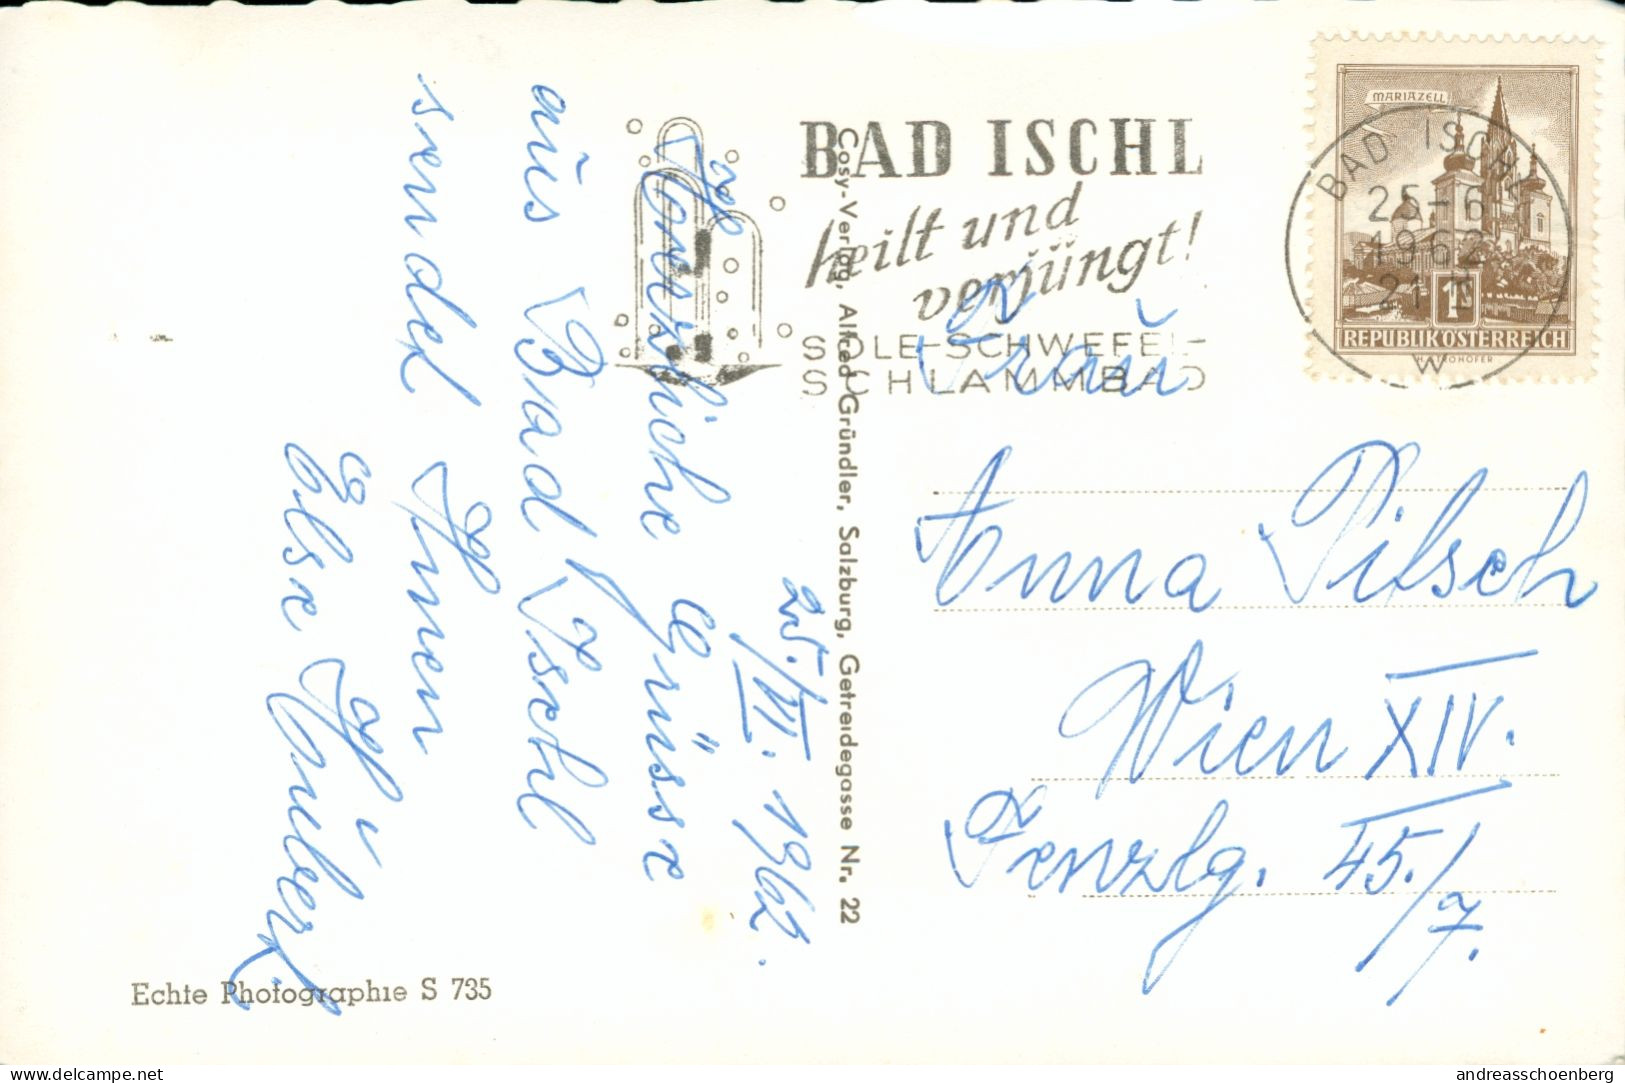 25./VI. 1962.
Herzliche Grüsse
aus Bad Ischl
sendet Ihnen
Else
Cosy-Verlag, Alfred Gründler, Salzburg, Getreidegasse Nr. 22
Echte Photographie S 735
BAD ISCHL
heilt und
verjüngt!
SOLE-SCHWEFEL-
SCHLAMMBAD
MARIAZELL
BAD ISCHL
25-6
1962
21
W
1S
REPUBLIK ÖSTERREICH
Frau
Anna Pilsch
Wien XIV.
Penzlg. 45./7.
andreasschoenberg